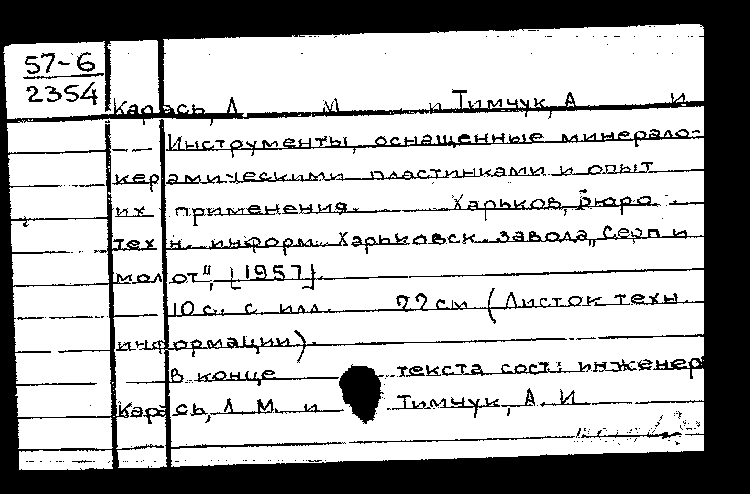 57-6
2354
Карась, Л М и Тимчук, А И
Инструменты, оснащенные минерало-
керамическими пластинками и опыт
их применения. Харьков, Бюро
техн. информ. Харьковск. завода „Серп и
молот", [1957].
10 с. с илл. 22 см (Листок техн.
информации).
В конце текста сост: инженер
Карась, Л. М. и Тимчук, А. И